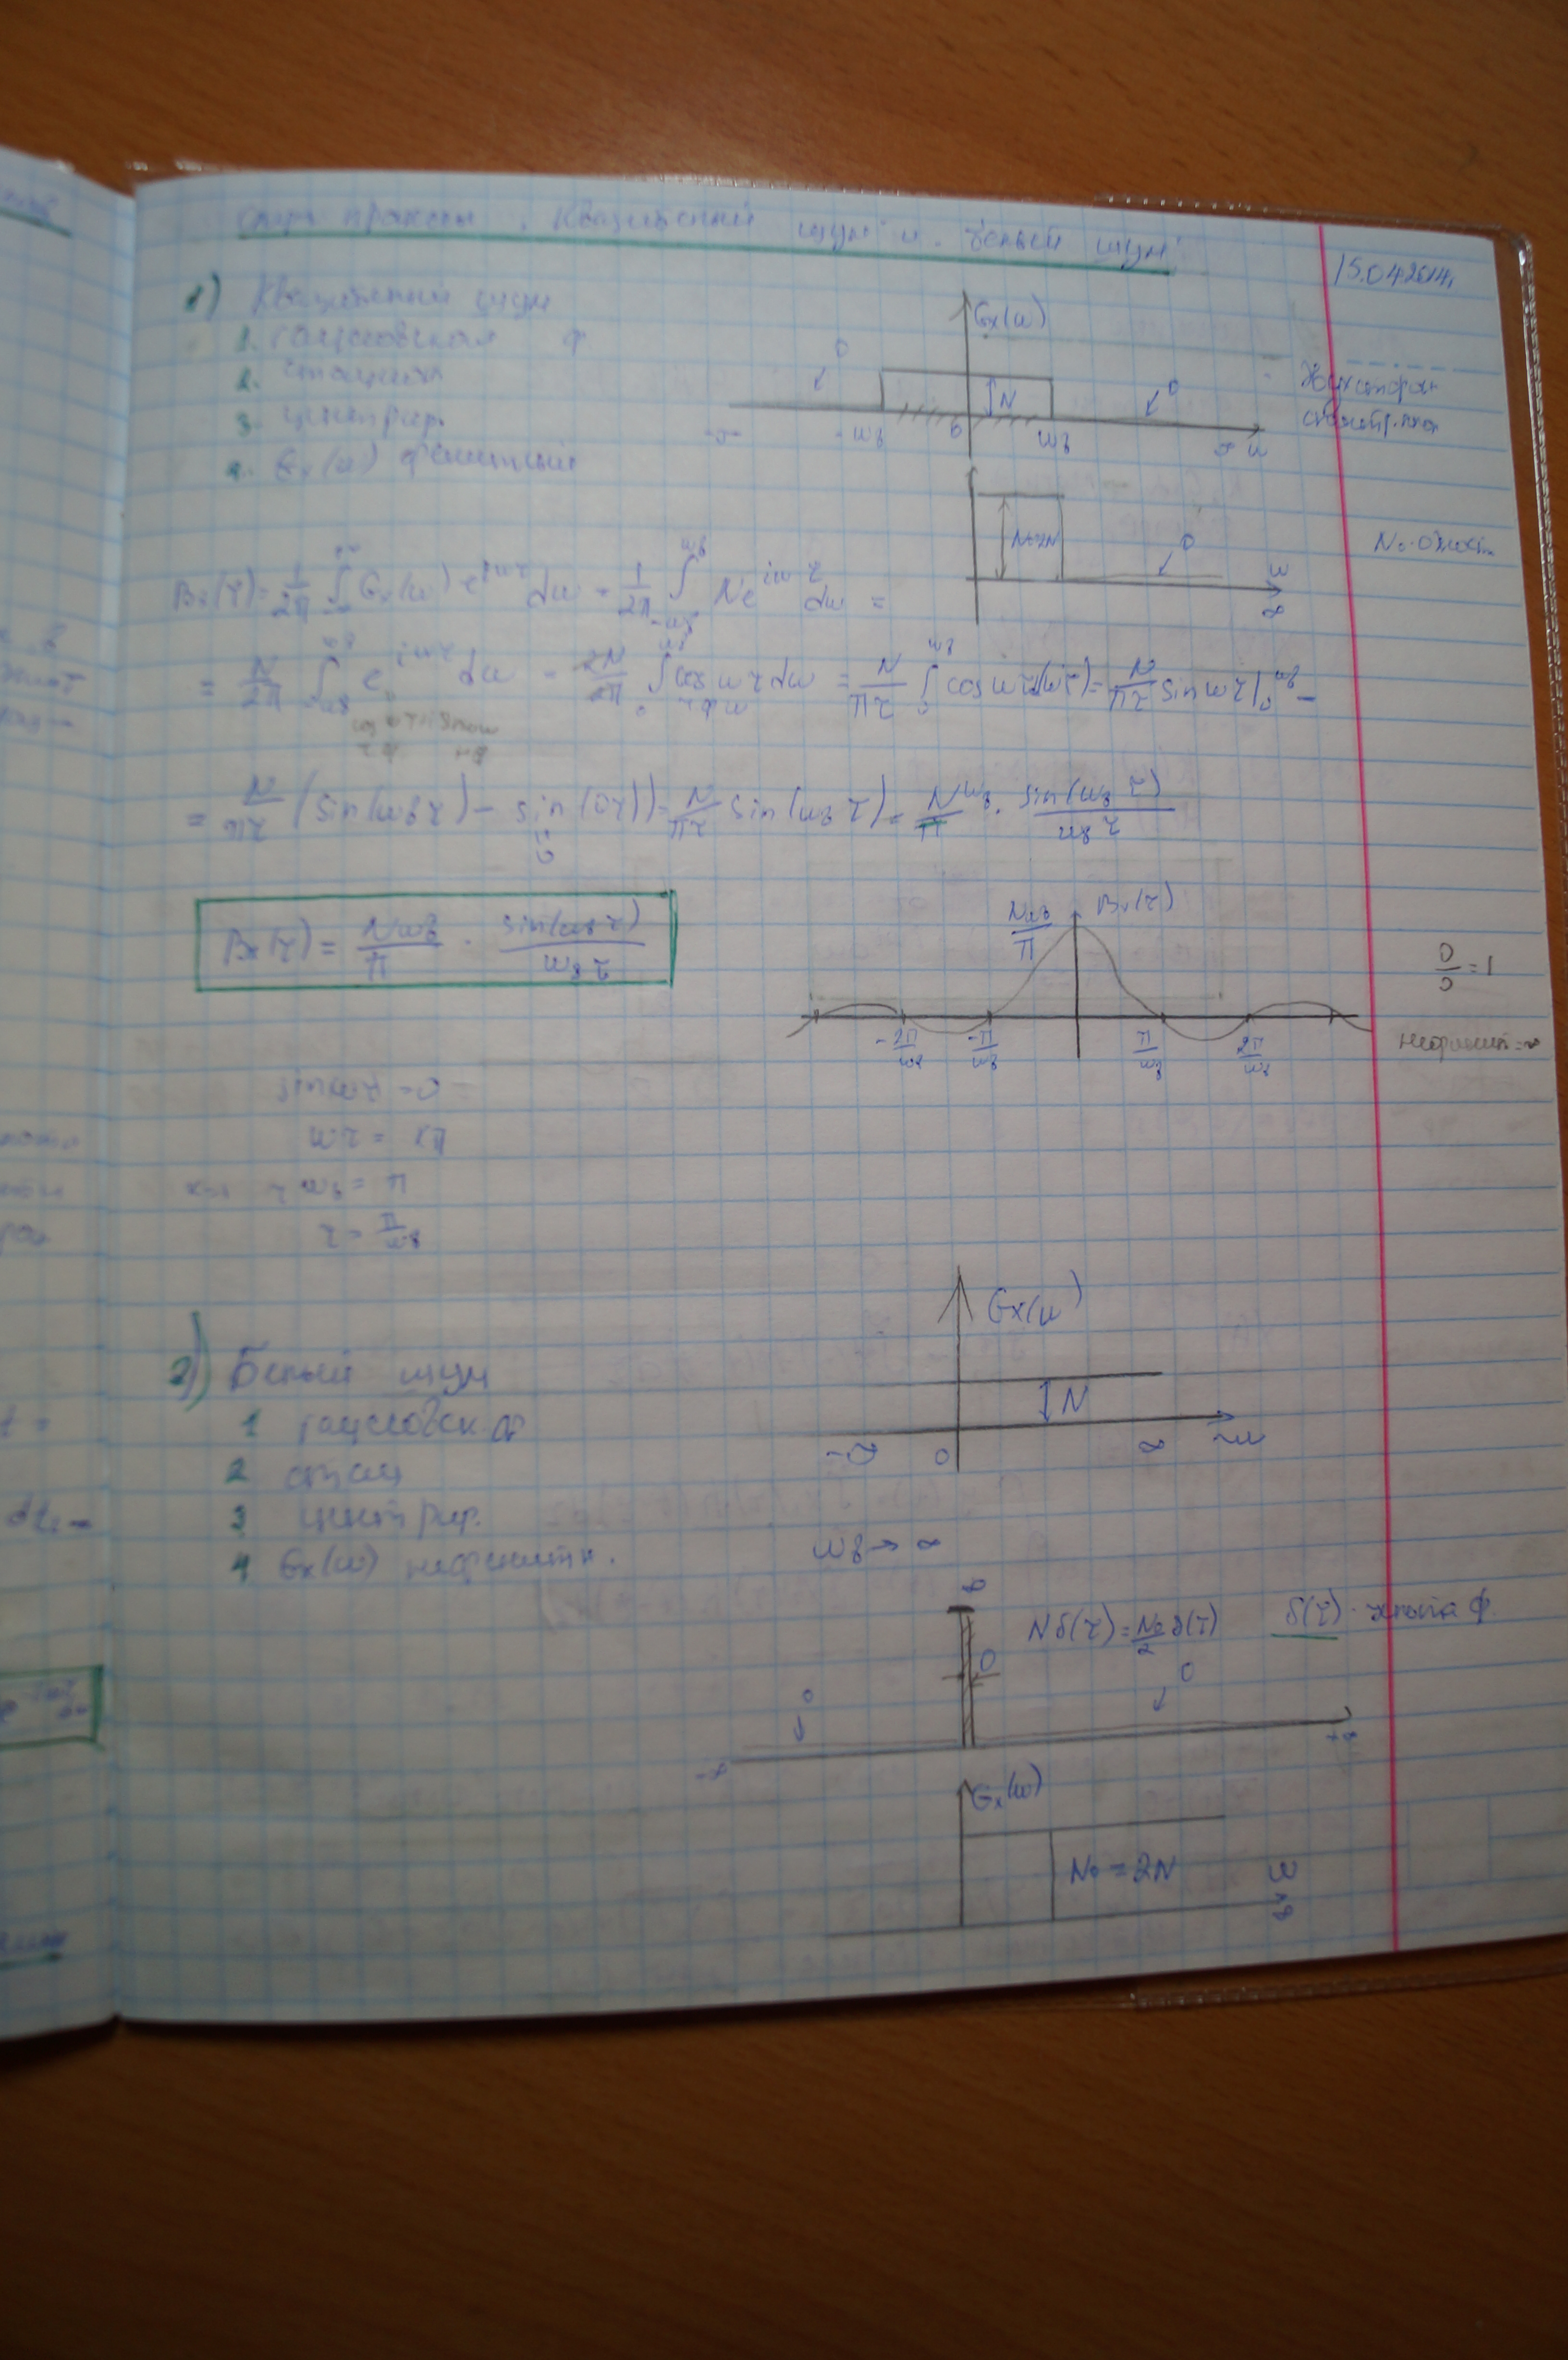 процессы. Квазибелый шум и белый шум.
15.04.2014г.
1) Квазибелый шум
1. гауссовская ф
2. стацион
3. центрир.
4. Gx(ω) финитный
Gx(ω)
0
N
0
-∞
-ωв
0
ωв
∞ ω
N0=2N
0
ω
∞
Bx(τ) = 1/2π ∫ Gx(ω) e^{jωτ} dω = 1/2π ∫_{-ωв}^{ωв} N e^{jωτ} dω =
= N/2π ∫_{-ωв}^{ωв} e^{jωτ} dω = 2N/2π ∫_0^{ωв} cos ωτ dω = N/πτ ∫_0^{ωв} cos ωτ d(ωτ) = N/πτ sin ωτ |_0^{ωв} =
= N/πτ (sin(ωвτ) - sin(0τ)) = N/πτ sin(ωвτ) = Nωв/π · sin(ωвτ)/ωвτ
0
Bx(τ) = Nωв/π · sin(ωвτ)/ωвτ
Nωв/π
Bx(τ)
0/0 = 1
-2π/ωв
-π/ωв
π/ωв
2π/ωв
sin ωτ = 0
ωτ = kπ
τωв = π
τ = π/ωв
Gx(ω)
2) Белый шум
N
1 гауссовск ф
-∞
0
∞
ω
2 стац
3 центрир.
4 Gx(ω) нефинитн.
ωв → ∞
∞
Nδ(τ) = N0/2 δ(τ)
δ(τ) - дельта ф.
0
0
0
-∞
+∞
Gx(ω)
N0 = 2N
ω
∞